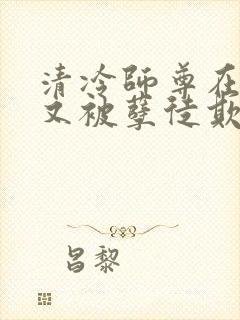 清泠师尊在
又被孽徒欺
昌黎